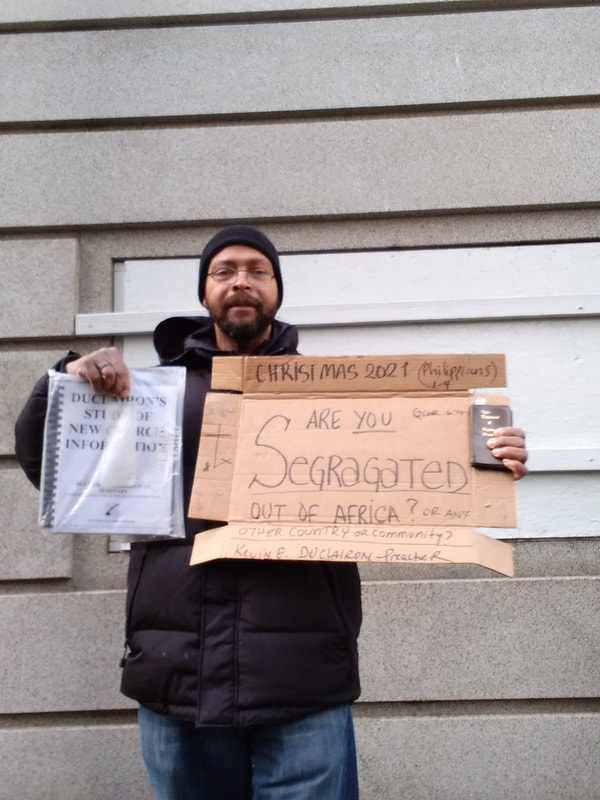 DUCLAIRON'S
STUDY OF
NEW CHURCH
INFORMATION
CHRISTMAS 2021 (Philippians)
1-9
ARE YOU
SEGRAGATED
OUT OF AFRICA? OR ANY
OTHER COUNTRY OR COMMUNITY?
KEVIN E. DUCLAIRON - Preacher